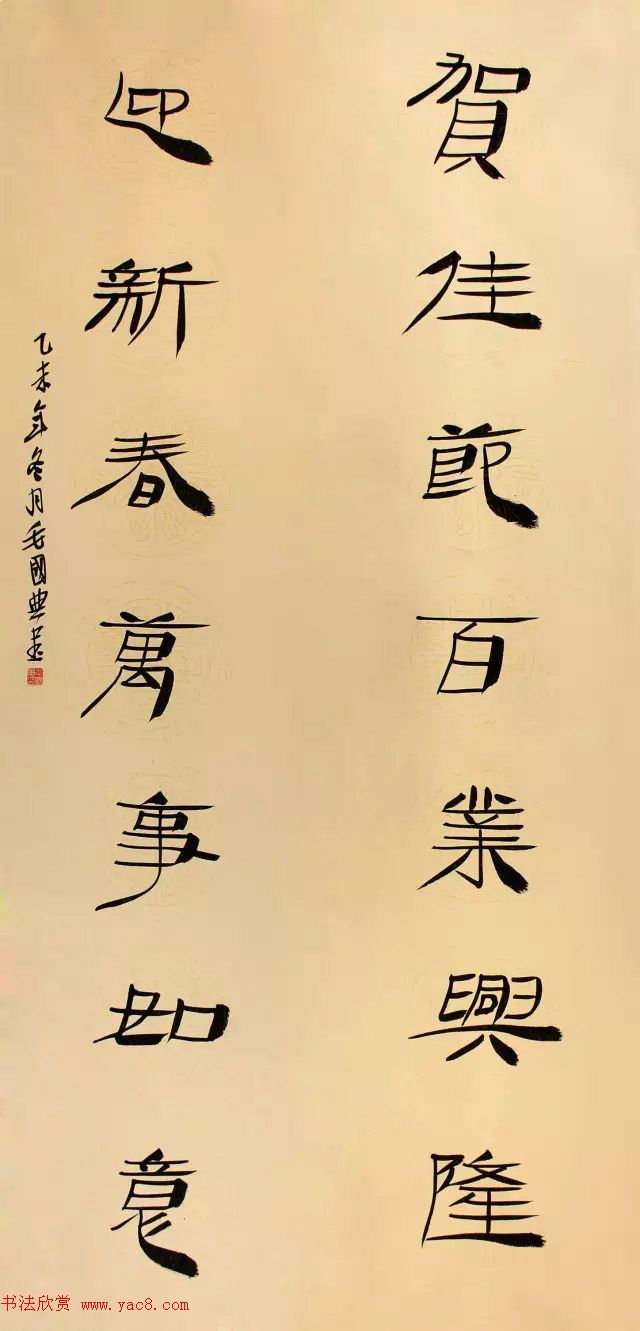 賀佳節百業興隆
迎新春萬事如意
乙未年冬月毛國典書
书法欣赏 www.yac8.com